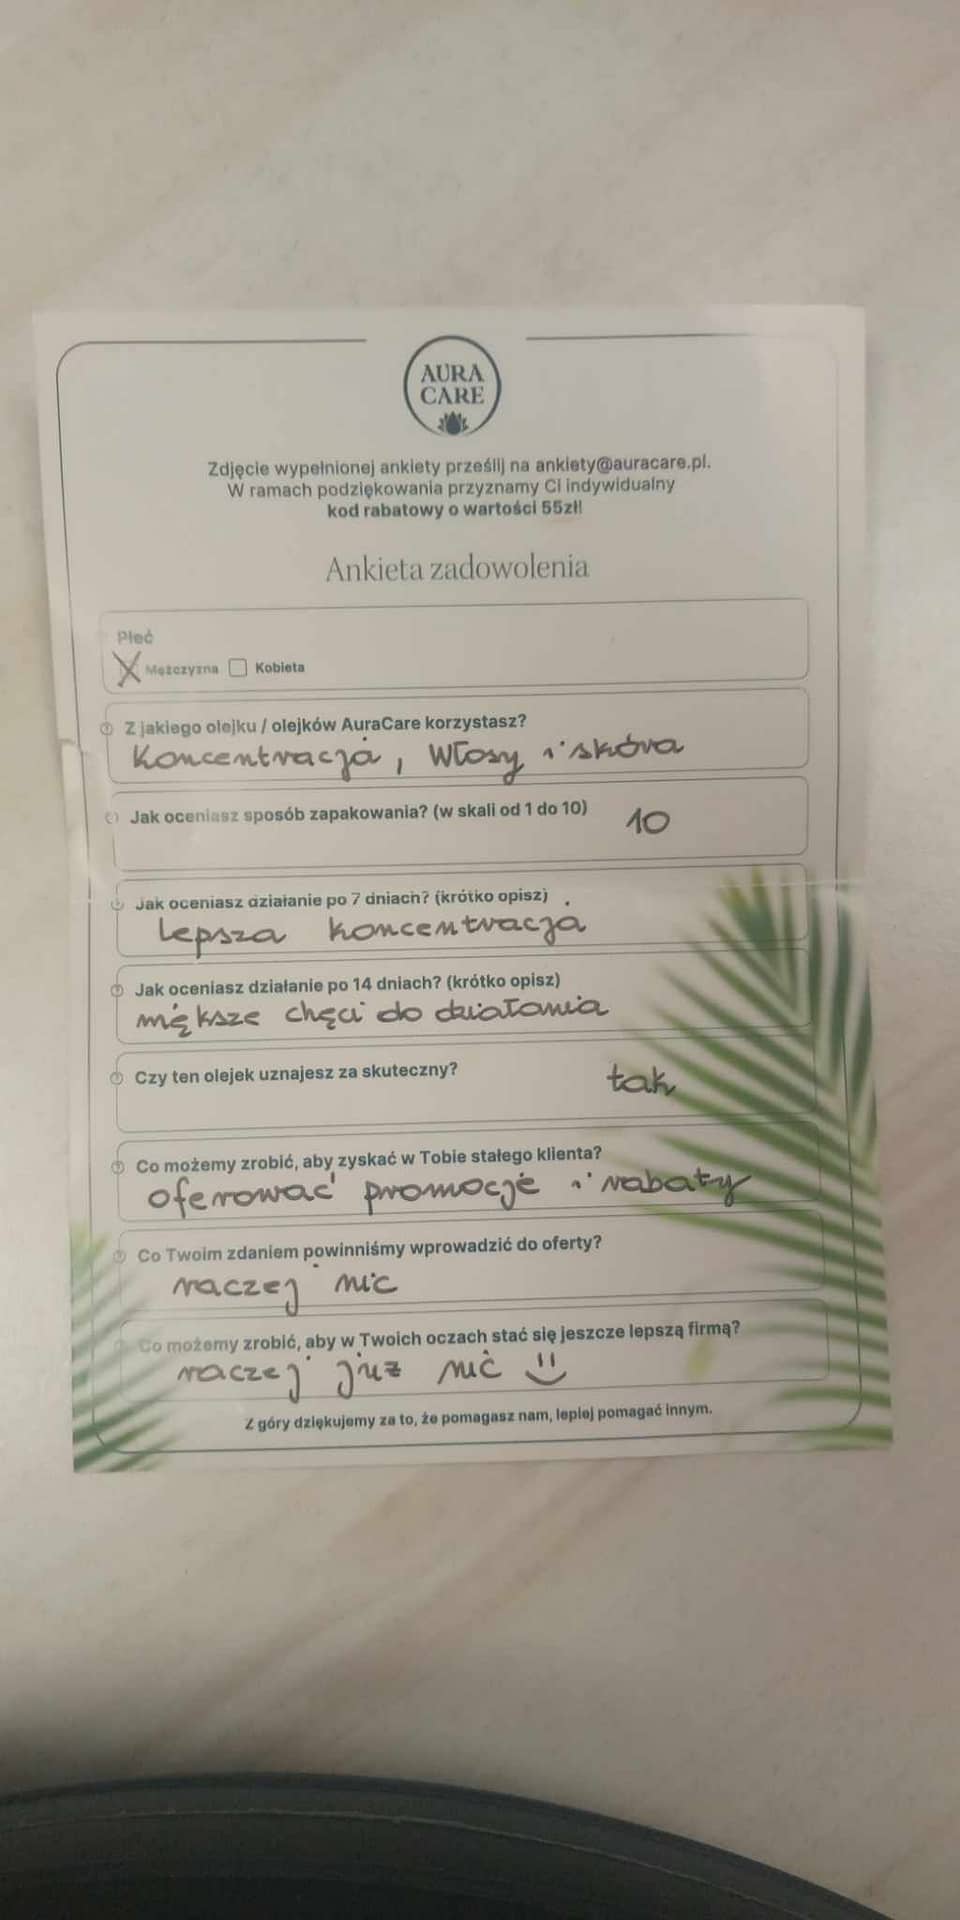 AURA
CARE
Zdjęcie wypełnionej ankiety prześlij na ankiety@auracare.pl.
W ramach podziękowania przyznamy Ci indywidualny
kod rabatowy o wartości 55zł!
Ankieta zadowolenia
Płeć
X Mężczyzna Kobieta
Z jakiego olejku / olejków AuraCare korzystasz?
Koncentracja, Włosy i skóra
Jak oceniasz sposób zapakowania? (w skali od 1 do 10) 10
Jak oceniasz działanie po 7 dniach? (krótko opisz)
lepsza koncentracja
Jak oceniasz działanie po 14 dniach? (krótko opisz)
większe chęci do działania
Czy ten olejek uznajesz za skuteczny? tak
Co możemy zrobić, aby zyskać w Tobie stałego klienta?
oferować promocje i rabaty
Co Twoim zdaniem powinniśmy wprowadzić do oferty?
raczej nic
Co możemy zrobić, aby w Twoich oczach stać się jeszcze lepszą firmą?
raczej już nic
Z góry dziękujemy za to, że pomagasz nam, lepiej pomagać innym.